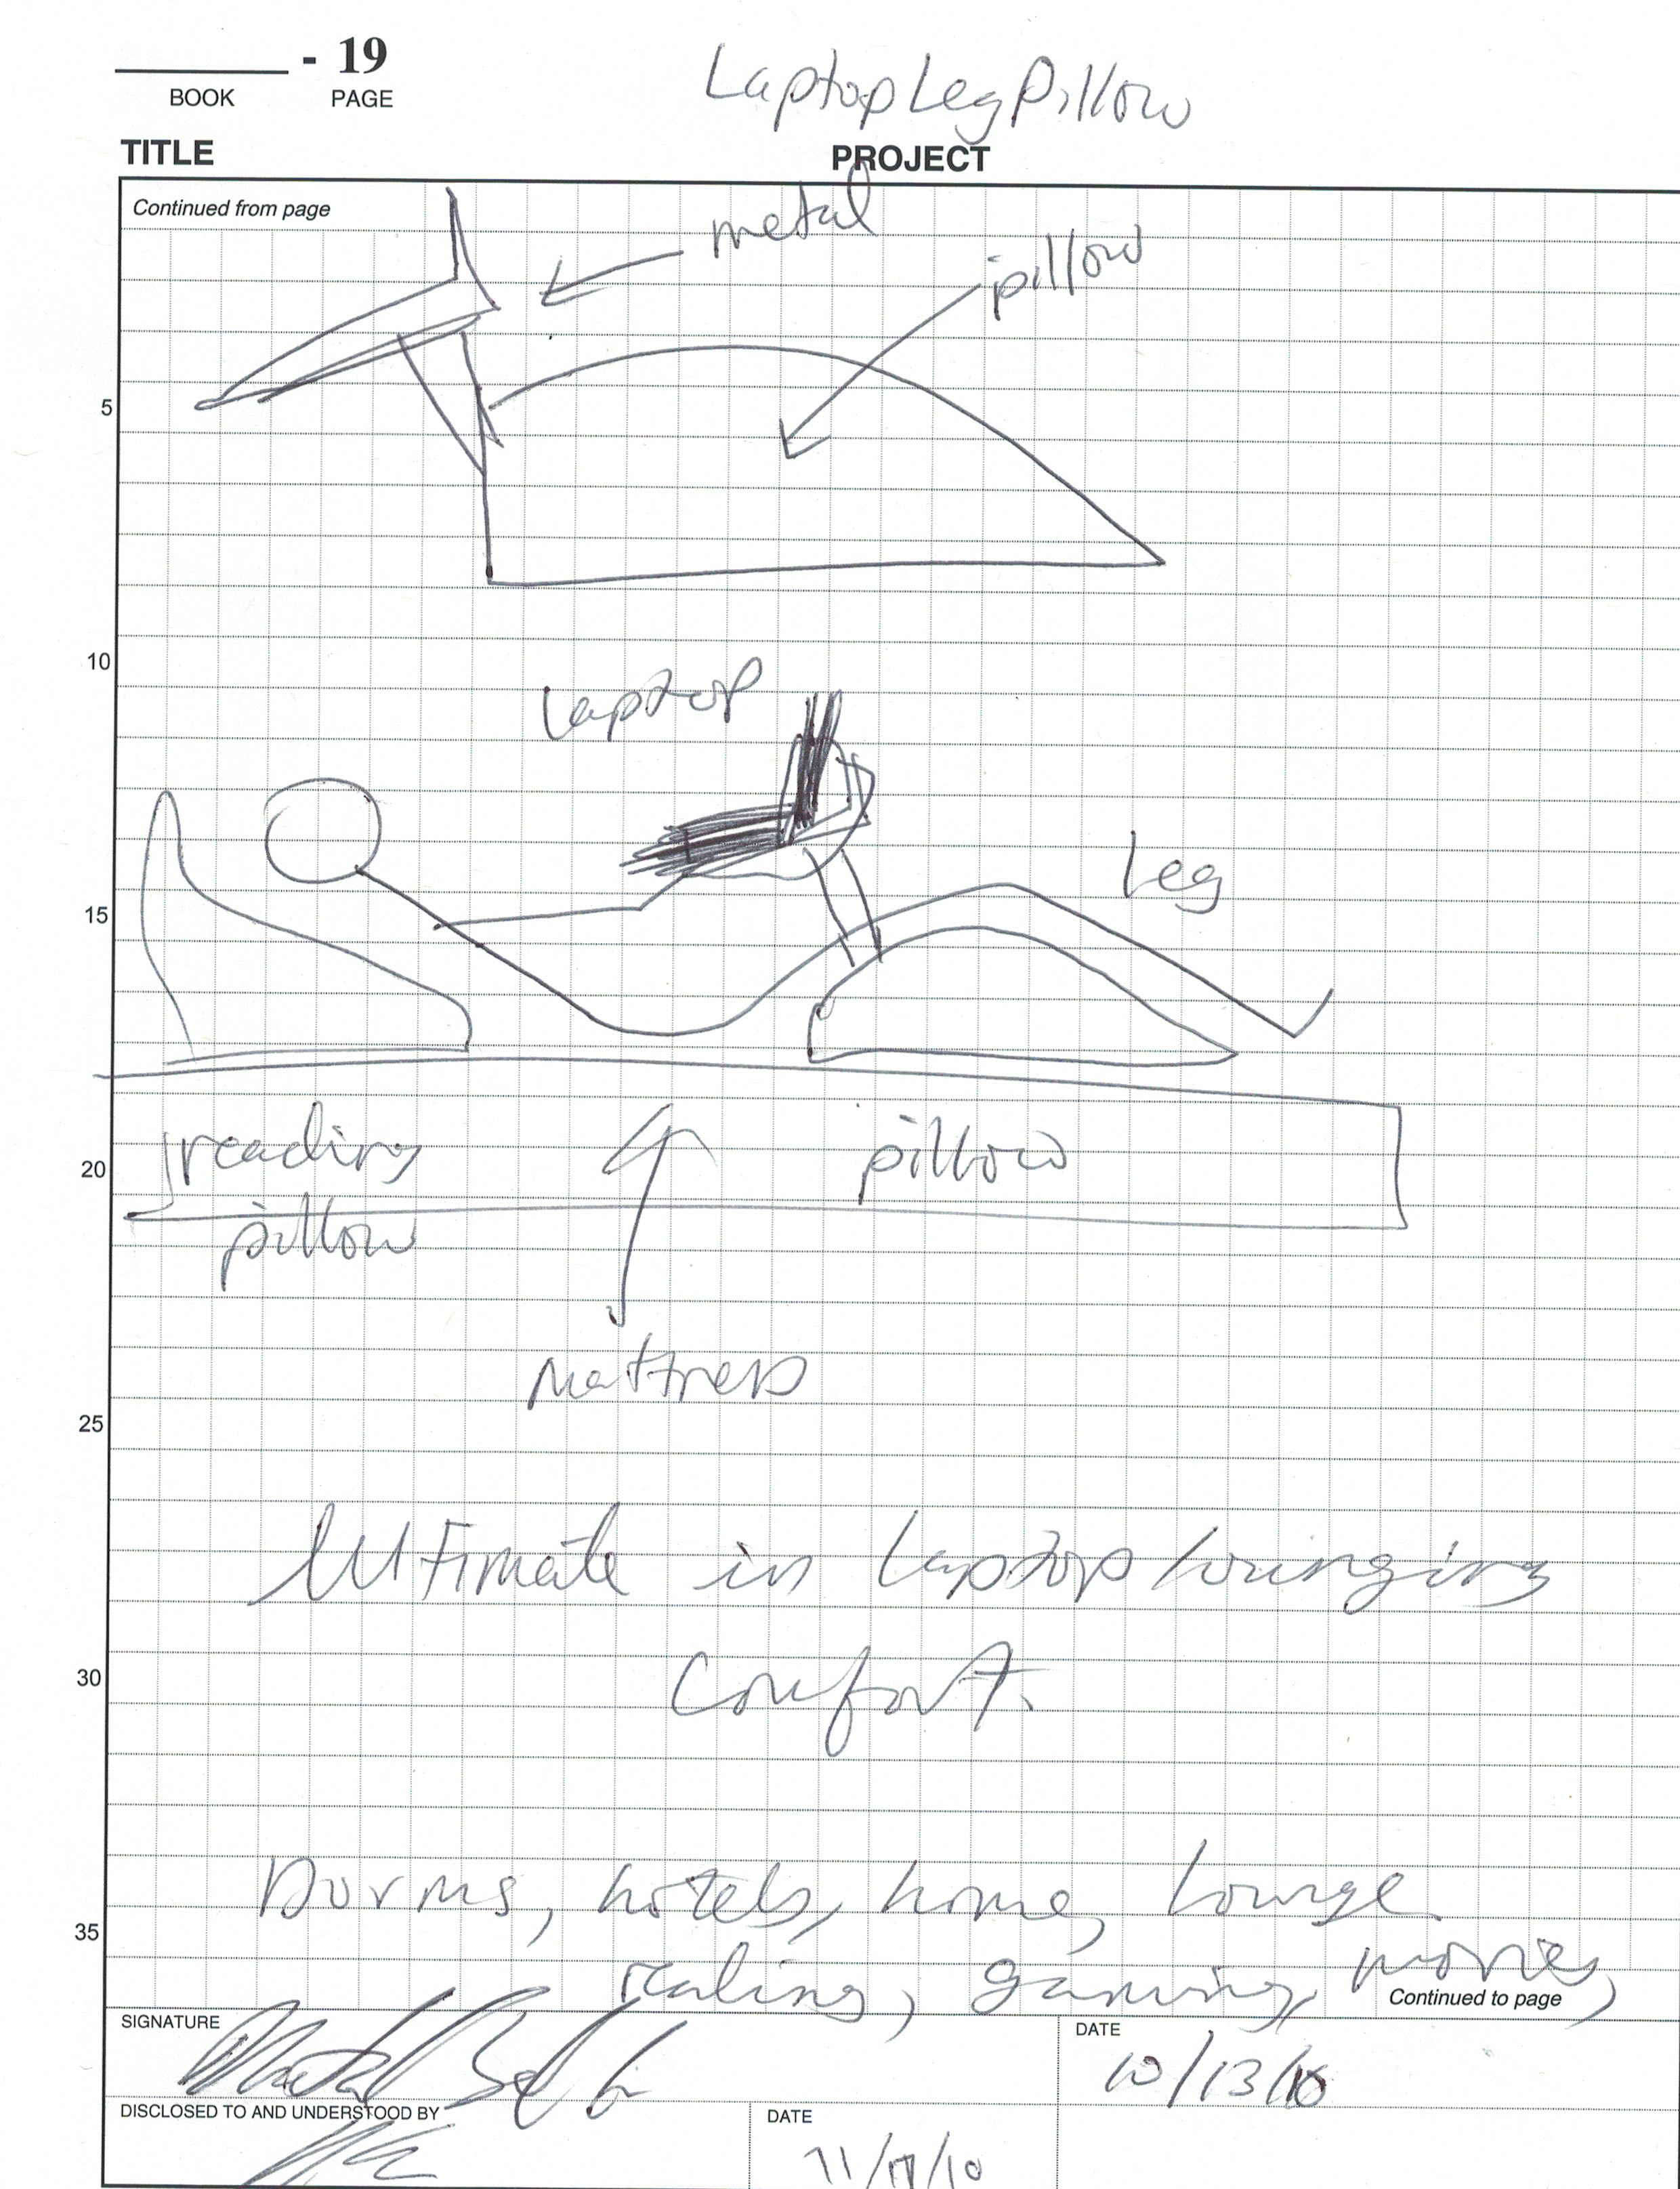 - 19
BOOK PAGE
Laptop Leg Pillow
TITLE PROJECT
Continued from page
metal
pillow
5
10
laptop
leg
15
reading
pillow
20
pillow
mattress
25
Ultimate in laptop lounging
comfort.
30
Dorms, hotels, home, lounge
35
reading, gaming, movies,
Continued to page
SIGNATURE
DATE
10/13/10
DISCLOSED TO AND UNDERSTOOD BY
DATE
11/17/10